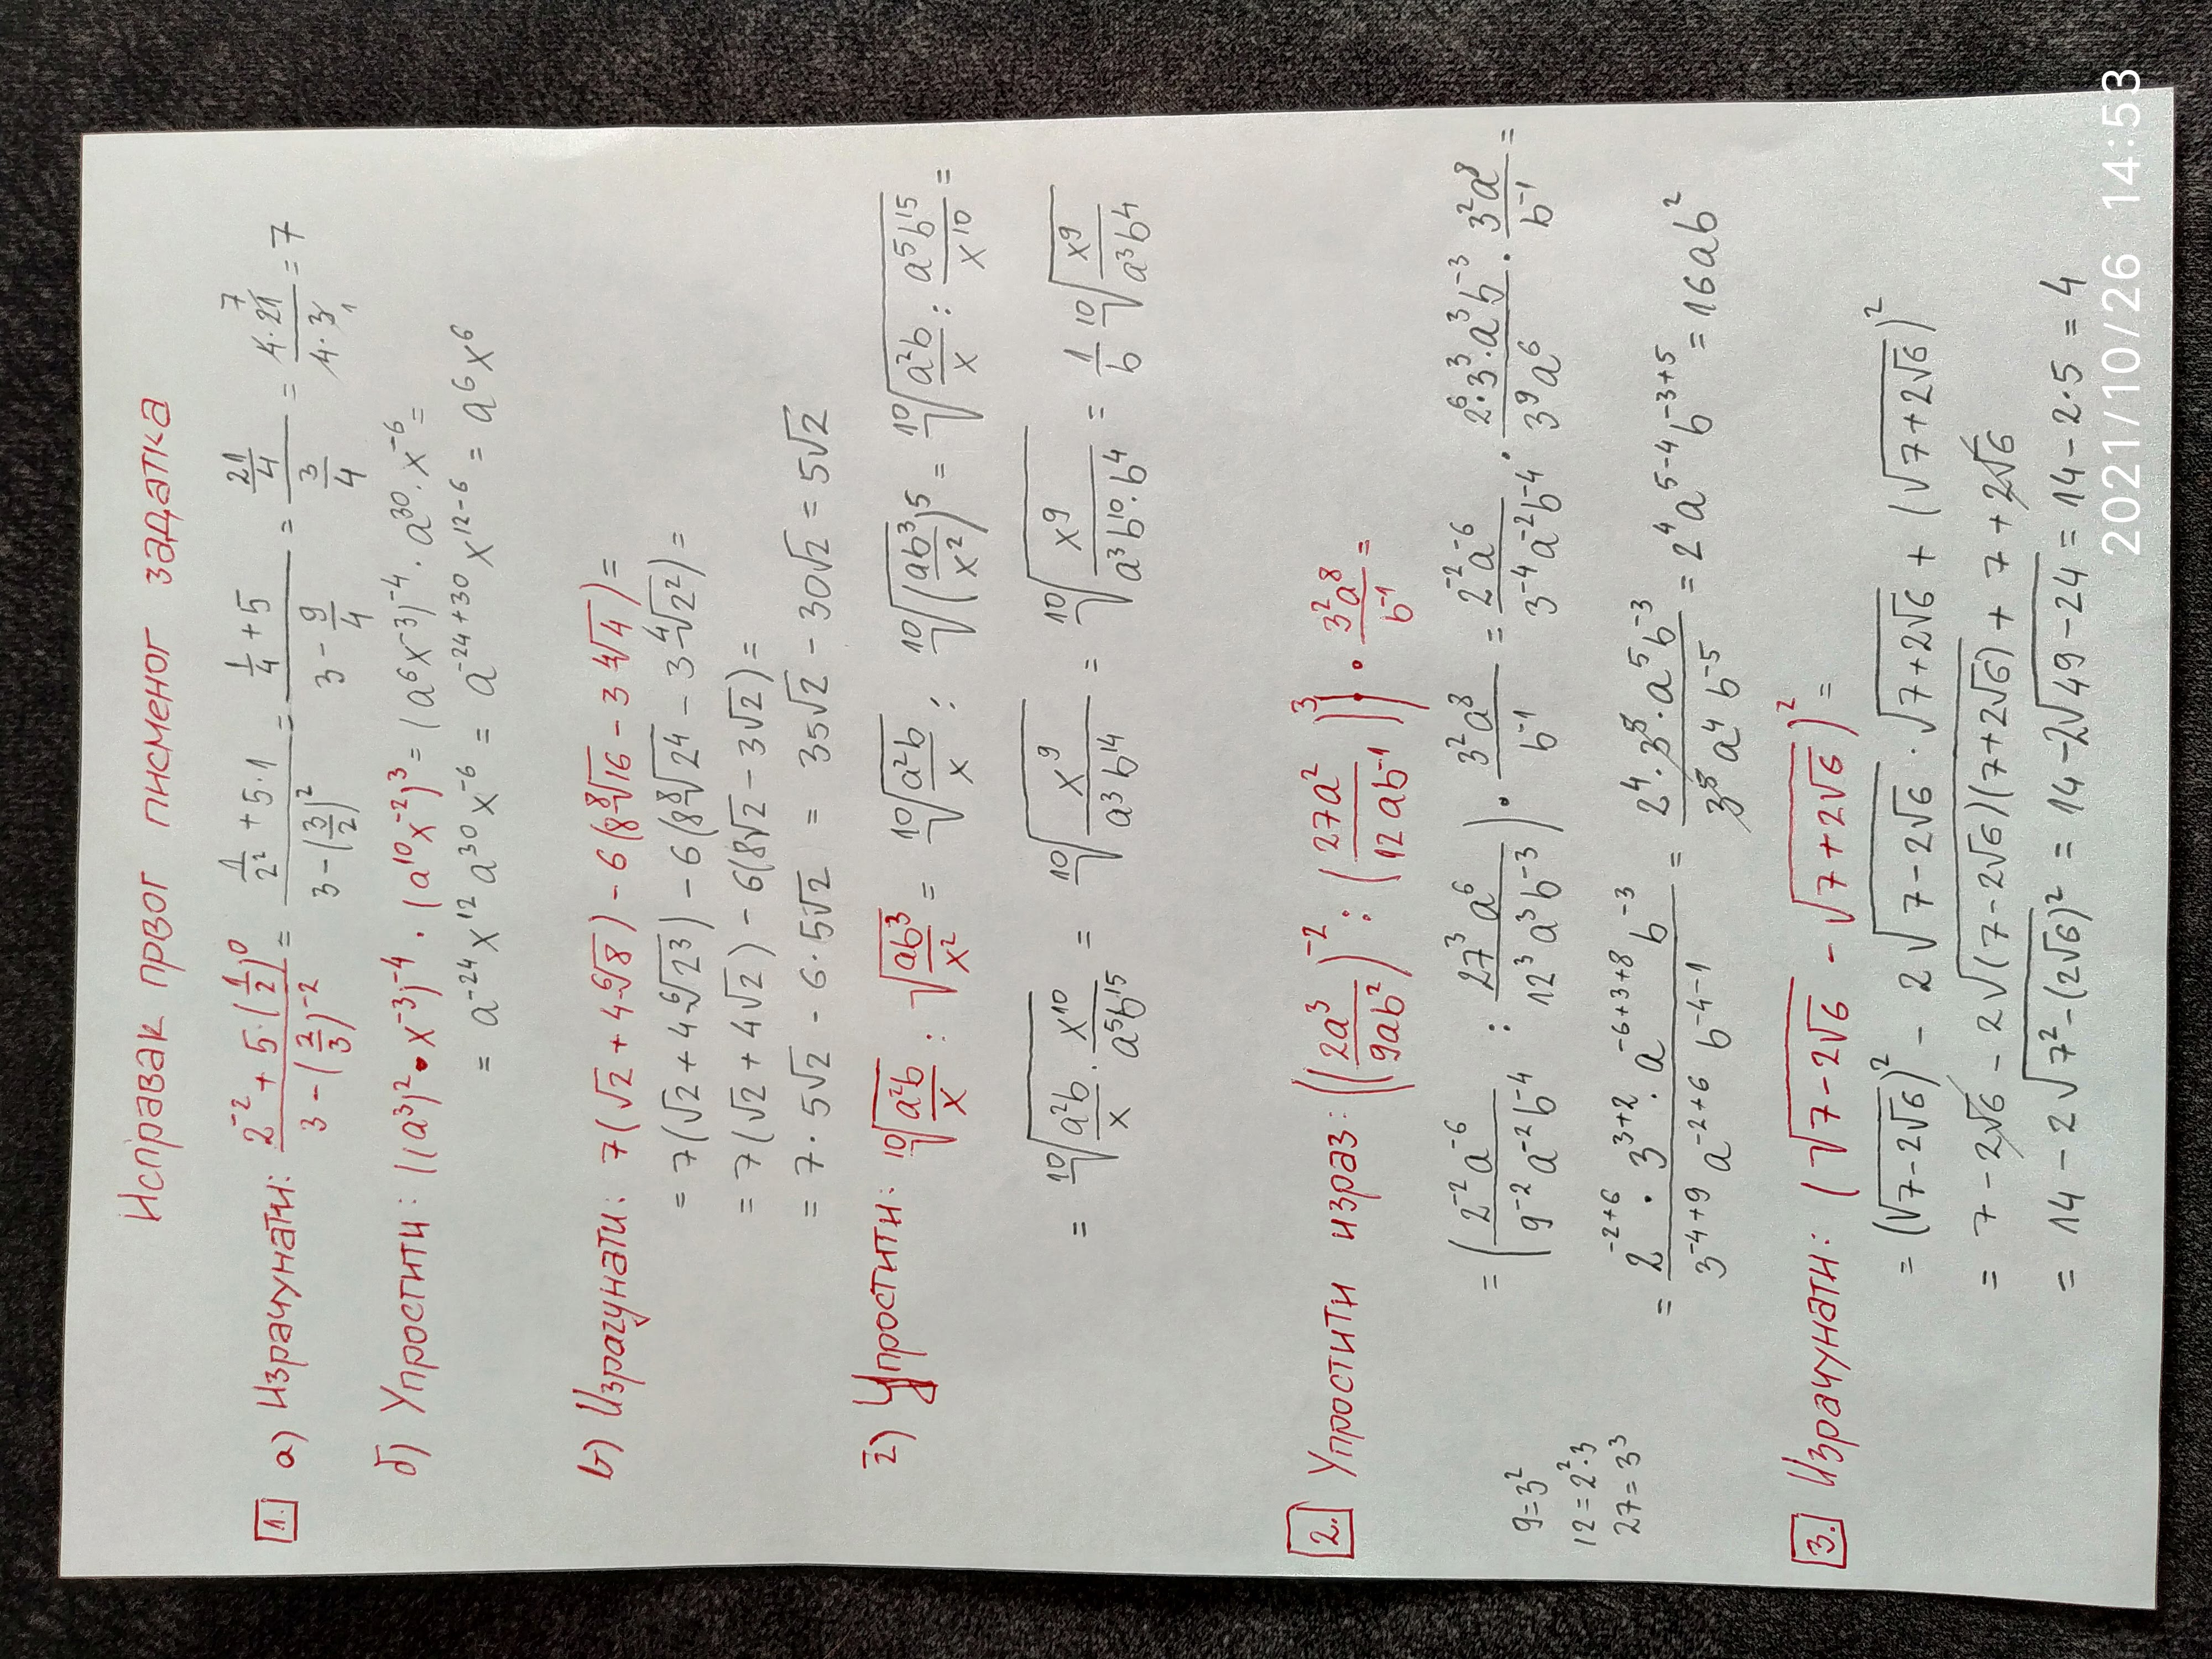 Исправак првог писменог задатка
1. а) Израчунати: (2⁻² + 5·(1/2)⁰)/(3 − (2/3)⁻²) = (1/2² + 5·1)/(3 − (3/2)²) = (1/4 + 5)/(3 − 9/4) = (21/4)/(3/4) = (4·21)/(4·3) 7 1 = 7
б) Упростити: ((a³)²·x⁻³)⁻⁴ · (a¹⁰x⁻²)³ = (a⁶x⁻³)⁻⁴ · a³⁰·x⁻⁶ =
= a⁻²⁴x¹²a³⁰x⁻⁶ = a⁻²⁴⁺³⁰x¹²⁻⁶ = a⁶x⁶
в) Израчунати: 7(√2 + 4·⁶√8) − 6(8⁸√16 − 3⁴√4) =
= 7(√2 + 4·⁶√2³) − 6(8⁸√2⁴ − 3⁴√2²) =
= 7(√2 + 4√2) − 6(8√2 − 3√2) =
= 7·5√2 − 6·5√2 = 35√2 − 30√2 = 5√2
г) Упростити: ¹⁰√(a²b/x) : √(ab³/x²) = ¹⁰√(a²b/x) : ¹⁰√((ab³/x²)⁵) = ¹⁰√(a²b/x : a⁵b¹⁵/x¹⁰) =
= ¹⁰√(a²b/x · x¹⁰/a⁵b¹⁵) = ¹⁰√(x⁹/a³b¹⁴) = ¹⁰√(x⁹/a³b¹⁰·b⁴) = 1/b ¹⁰√(x⁹/a³b⁴)
2. Упростити израз: ((2a³/9ab²)⁻² : (27a²/12ab⁻¹)³) · 3²a⁸/b⁻¹ =
= (2⁻²a⁻⁶/9⁻²a⁻²b⁻⁴ : 27³a⁶/12³a³b⁻³) · 3²a⁸/b⁻¹ = 2⁻²a⁻⁶/3⁻⁴a⁻²b⁻⁴ · 2⁶·3³·a³b⁻³/3⁹a⁶ · 3²a⁸/b⁻¹ =
9=3²
12=2²·3
27=3³
= 2⁻²⁺⁶·3³⁺²·a⁻⁶⁺³⁺⁸b⁻³/3⁻⁴⁺⁹a⁻²⁺⁶b⁻⁴⁻¹ = 2⁴·3⁵·a⁵b⁻³/3⁵a⁴b⁻⁵ = 2⁴a⁵⁻⁴b⁻³⁺⁵ = 16ab²
3. Израчунати: (√(7−2√6) − √(7+2√6))² =
= (√(7−2√6))² − 2√(7−2√6)·√(7+2√6) + (√(7+2√6))²
= 7 − 2√6 − 2√((7−2√6)(7+2√6)) + 7 + 2√6
= 14 − 2√(7²−(2√6)²) = 14−2√(49−24) = 14−2·5 = 4
2021/10/26 14:53